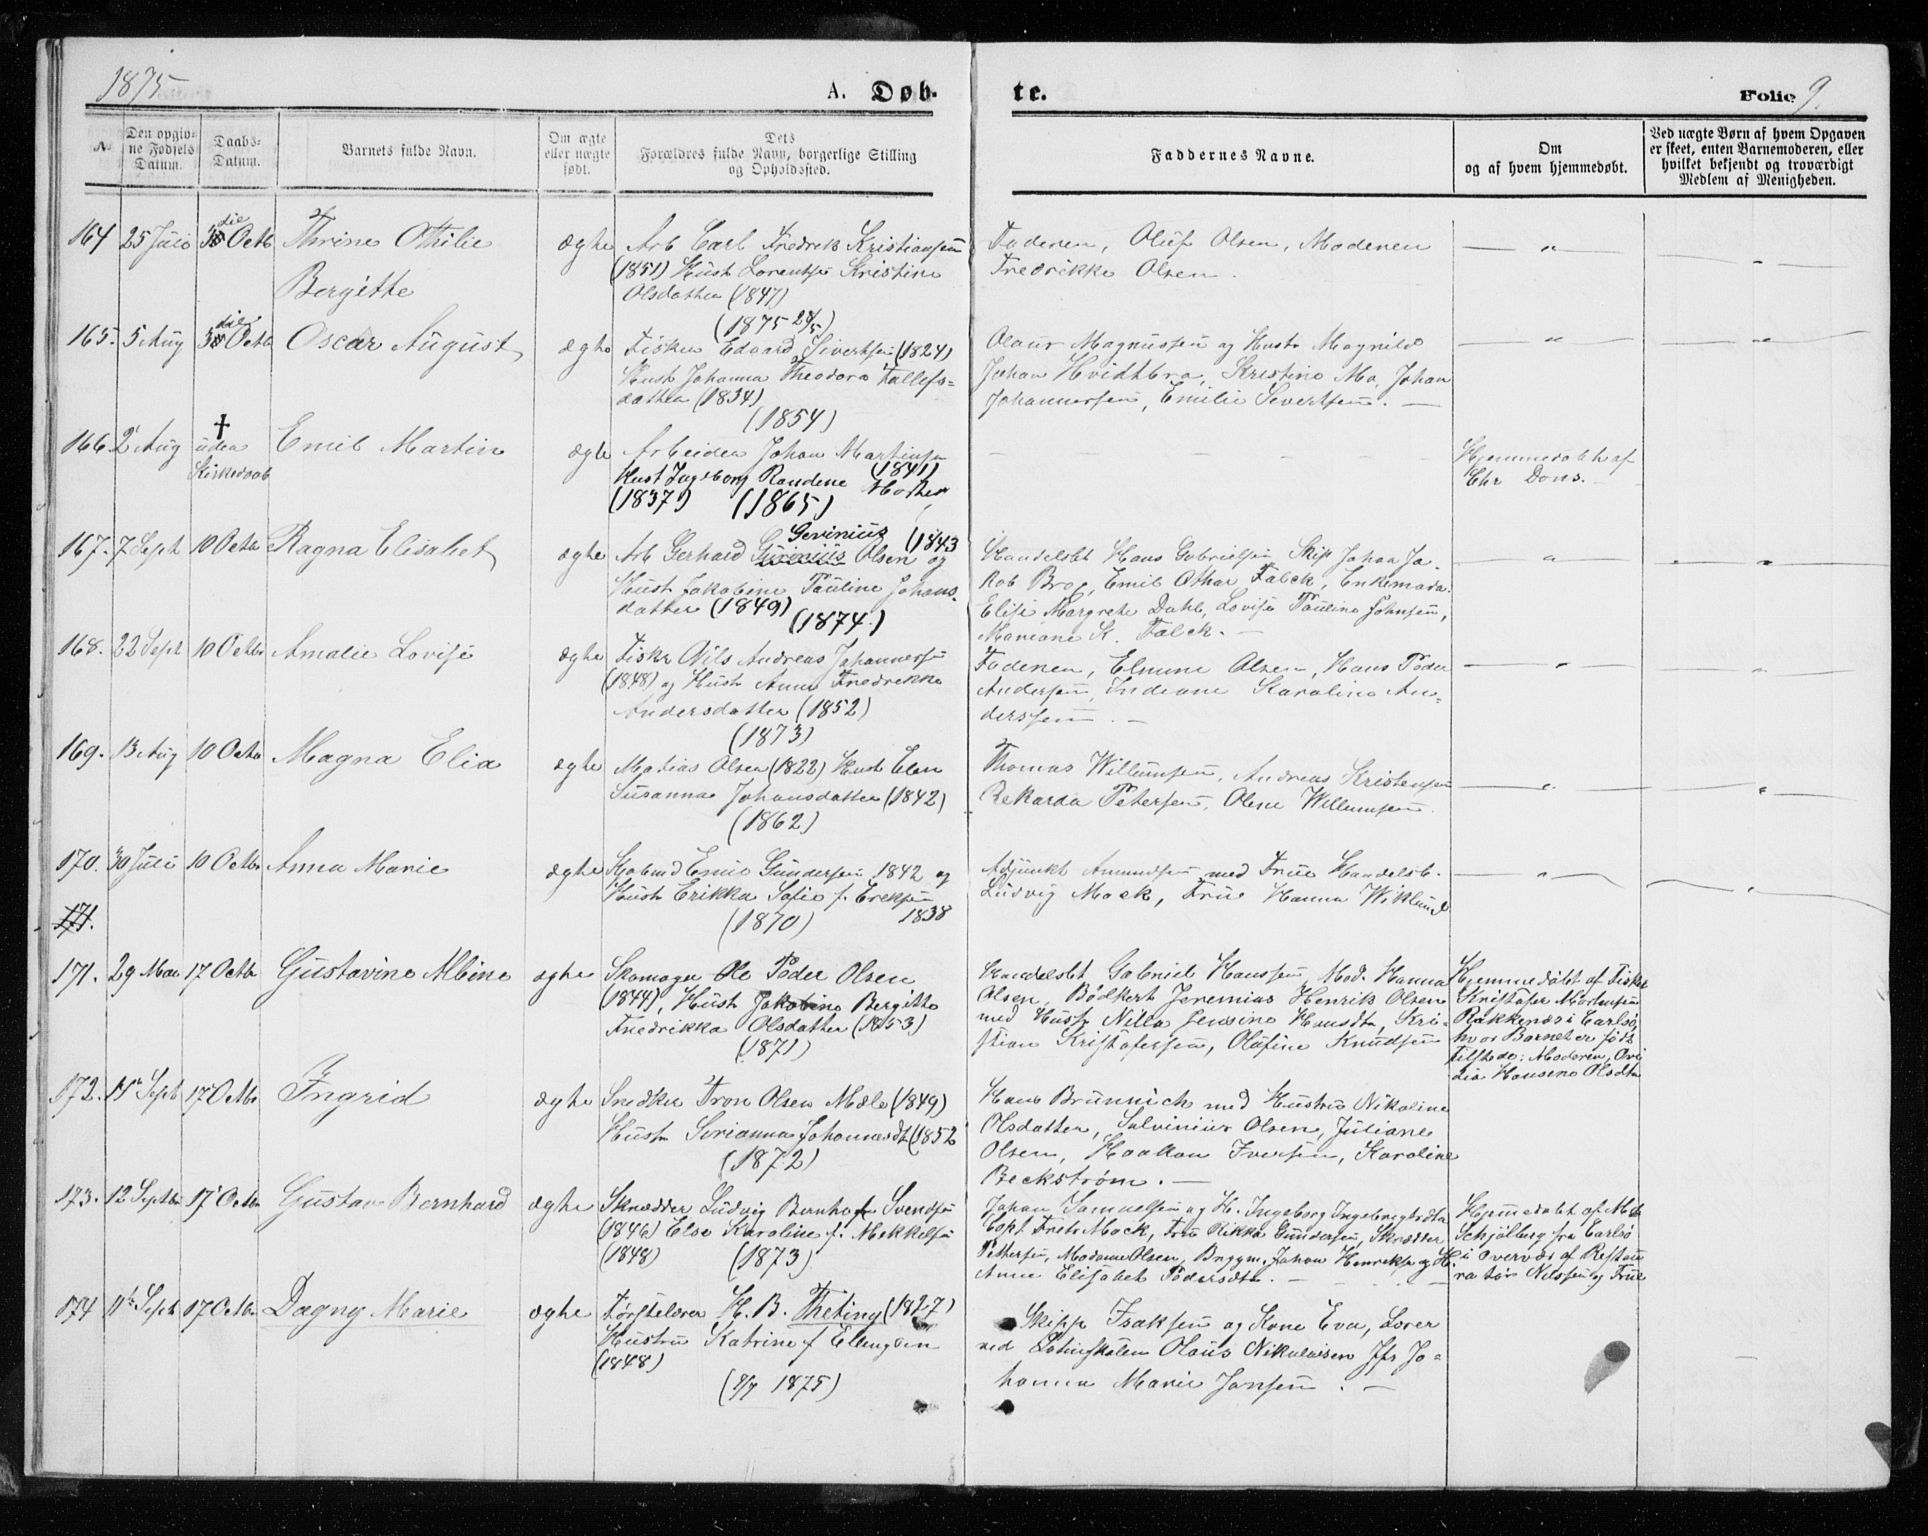 1875
A. Døb-
te.
Folio 9.
No
Den opgiv-
ne Fødsels
Datum.
Daabs-
Datum.
Barnets fulde Navn.
Om ægte
eller uægte
født.
Dets
Forældres fulde Navn, borgerlige Stilling
og Opholdssted.
Faddernes Navne.
Om
og af hvem hjemmedøbt.
Ved uægte Børn af hvem Opgaven
er skeet, enten Barnemoderen, eller
hvilket bekjendt og troværdigt
Medlem af Menigheden.
164 25 Juli 3die Octb Thrine Othilie
Bergitte
ægte
Arb Carl Fredrek Kristiansen
(1851) Hust Lorentse Kristine
Olsdatter (1847)
(1875 28/5)
Faderen, Oluf Olsen, Moderen
Fredrikke Olsen.
165. 5 Aug 3die Octb Oscar August
ægte
Fisker Edvard Sivertsen (1824)
Hust Johanna Theodora Tollefs=
datter (1834)
(1854)
Olaus Magnussen og Hustr Magnild
Johan Hvidtbro, Kristine Mo, Johan
Johannessen, Emilie Sivertsen. —
166 2 Aug † uden
Kirkedaab
Emil Martin
ægte
Arbeider Johan Martinsen
(1841)
Hust Ingeborg Randene
(1837) (1865)
Hjemmedøbt af
Chr Dons. —
167. 7 Sept 10 Octbr Ragna Elisabet
ægte
Gerinius (1843
Arb Gerhard Olsen og
Hust Jakobine Pauline Johans-
datter (1849)
(1874)
Handelsbt Hans Gabrielsen Skip Johan Ja-
kob Brox, Emil Othar Falck, Enkemada
Elise Margrete Dahl, Lovise Pauline Johnsen,
Mariane K. Falck. —
168. 22 Sept 10 Octbr Amalie Lovise
ægte
Fiskr Nils Andreas Johannessen
(1848) og Hust Anne Fredrekke
Andersdatter (1852)
(1873)
Faderen, Elmine Olsen, Hans Peder
Andersen, Indiane Karoline An-
derssen. —
169. 13 Aug 10 Octbr Magna Elia
ægte
Matias Olsen (1822) Hust Elen
Susanna Johansdatter (1842)
(1862)
Thomas Willumsen, Andreas Kristensen
Rekarda Petersen, Oline Willumsen.
170. 30 Juli 10 Octbr Anna Marie
ægte
Emil Gundersen 1842 og
Hust Erikka Sofie f. Ereksen
(1870) 1838
Adjunkt Amundsen med Frue Handelsb.
Ludvig Mack, Frue Hanna Wiklund
171.
171. 29 Mai 17 Octbr Gustavine Albine
ægte
Skomager Ole Peder Olsen
(1844), Hust Jakobine Bergitte
Fredrikka Olsdatter (1853)
(1871)
Handelsbt Gabriel Hanssen, Mad. Hanna
Olsen, Bødkert Jeremias Henrik Olsen
med Hustr Nilla Jensine Hansdt, Kri-
stian Kristofersen, Olufine Knudsen
Hjemmedøbt af Fisker
Kristofer Mortensen
Rakkenæs i Carlsø,
hvor Barnet er født
Tilstede: Moderen, Ovi
dia Hansine Olsdtr
172. 15 Sept 17 Octbr Ingrid
ægte
Snedker Tron Olsen Mæle (1849)
Hustr Serianna Johannesdt (1852
(1872)
Hans Brunnick med Hustru Nikoline
Olsdatter, Salvinius Olsen, Juliane
Olsen, Haakon Iversen, Karoline
Beckstrøm. —
173. 12 Septbr 17 Octbr Gustav Bernhard
ægte
Skrædder Ludvig Bernhof Svendsen
(1846) Else Karoline f. Mekkelsen
(1848) (1873)
Johan Samuelsen og H. Ingeborg Ingebrigtsdtr
Copt Frits Mack, Fru Rikka Gundersen, Skrædder
Pettersen, Madame Olsen, Brygm. Johan Henriksen og H.
Anne Elisabet Pedersdtr. —
Hjemmedøbt af Md
Schjølberg fra Carlsø
i Overvær af Restau
ratør Nilssen og Frue
174 11te Sept 17 Octbr Dagny Marie
ægte
Førstelærer H. B. Theting (1827)
Hustru Katrine f Ellingsen
(1848)
(9/7 1875)
Skipp Isaksen og Kone Eva, Lærer
ved Latinskolen Olaus Nikolaisen Jfr Jo-
hanna Marie Jansen. —